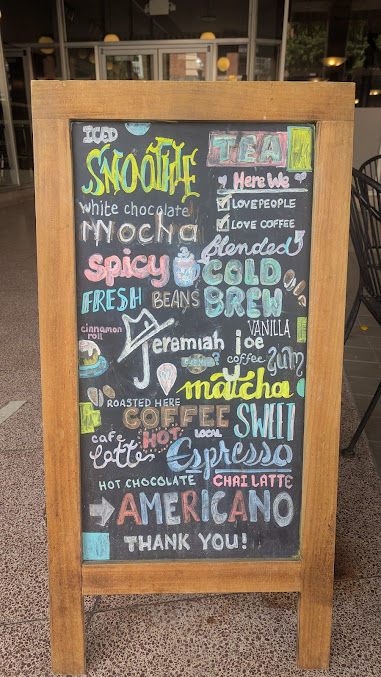 ICED
SMOOTHIE
TEA
Here We
LOVE PEOPLE
LOVE COFFEE
white chocolate
mocha
blended
SPICY
COLD
BREW
FRESH BEANS
cinnamon
roll
Jeremiah Joe
coffee
VANILLA
YUM
matcha
ROASTED HERE
COFFEE
SWEET
cafe
latte
HOT
LOCAL
Espresso
HOT CHOCOLATE
CHAI LATTE
AMERICANO
THANK YOU!